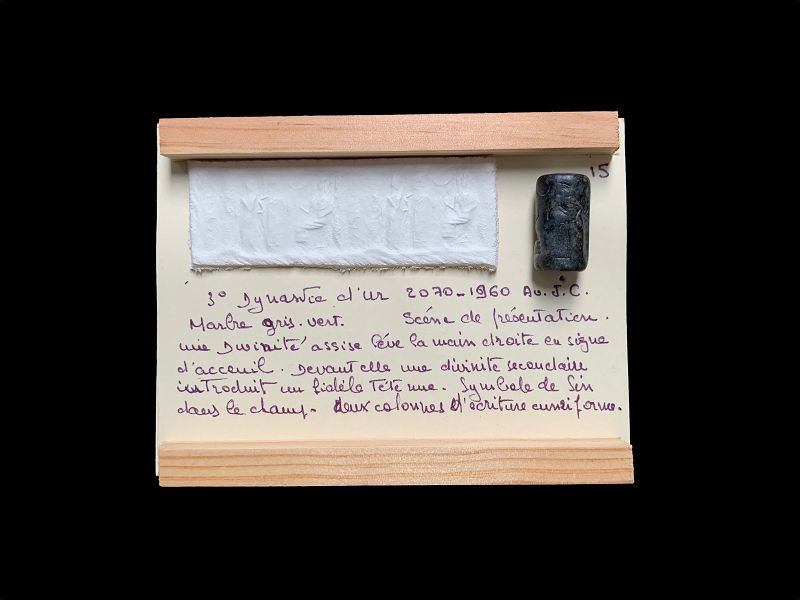 15
3° Dynastie d'ur 2070-1960 Av. J.C.
Marbre gris-vert. Scéne de présentation.
une Divinité assise léve la main droite en signe
d'acceuil. Devant elle une divinité secondaire
introduit un fidéle Tête nue. Symbole de Sin
dans le champ. deux colonnes d'écriture cuneiforme.